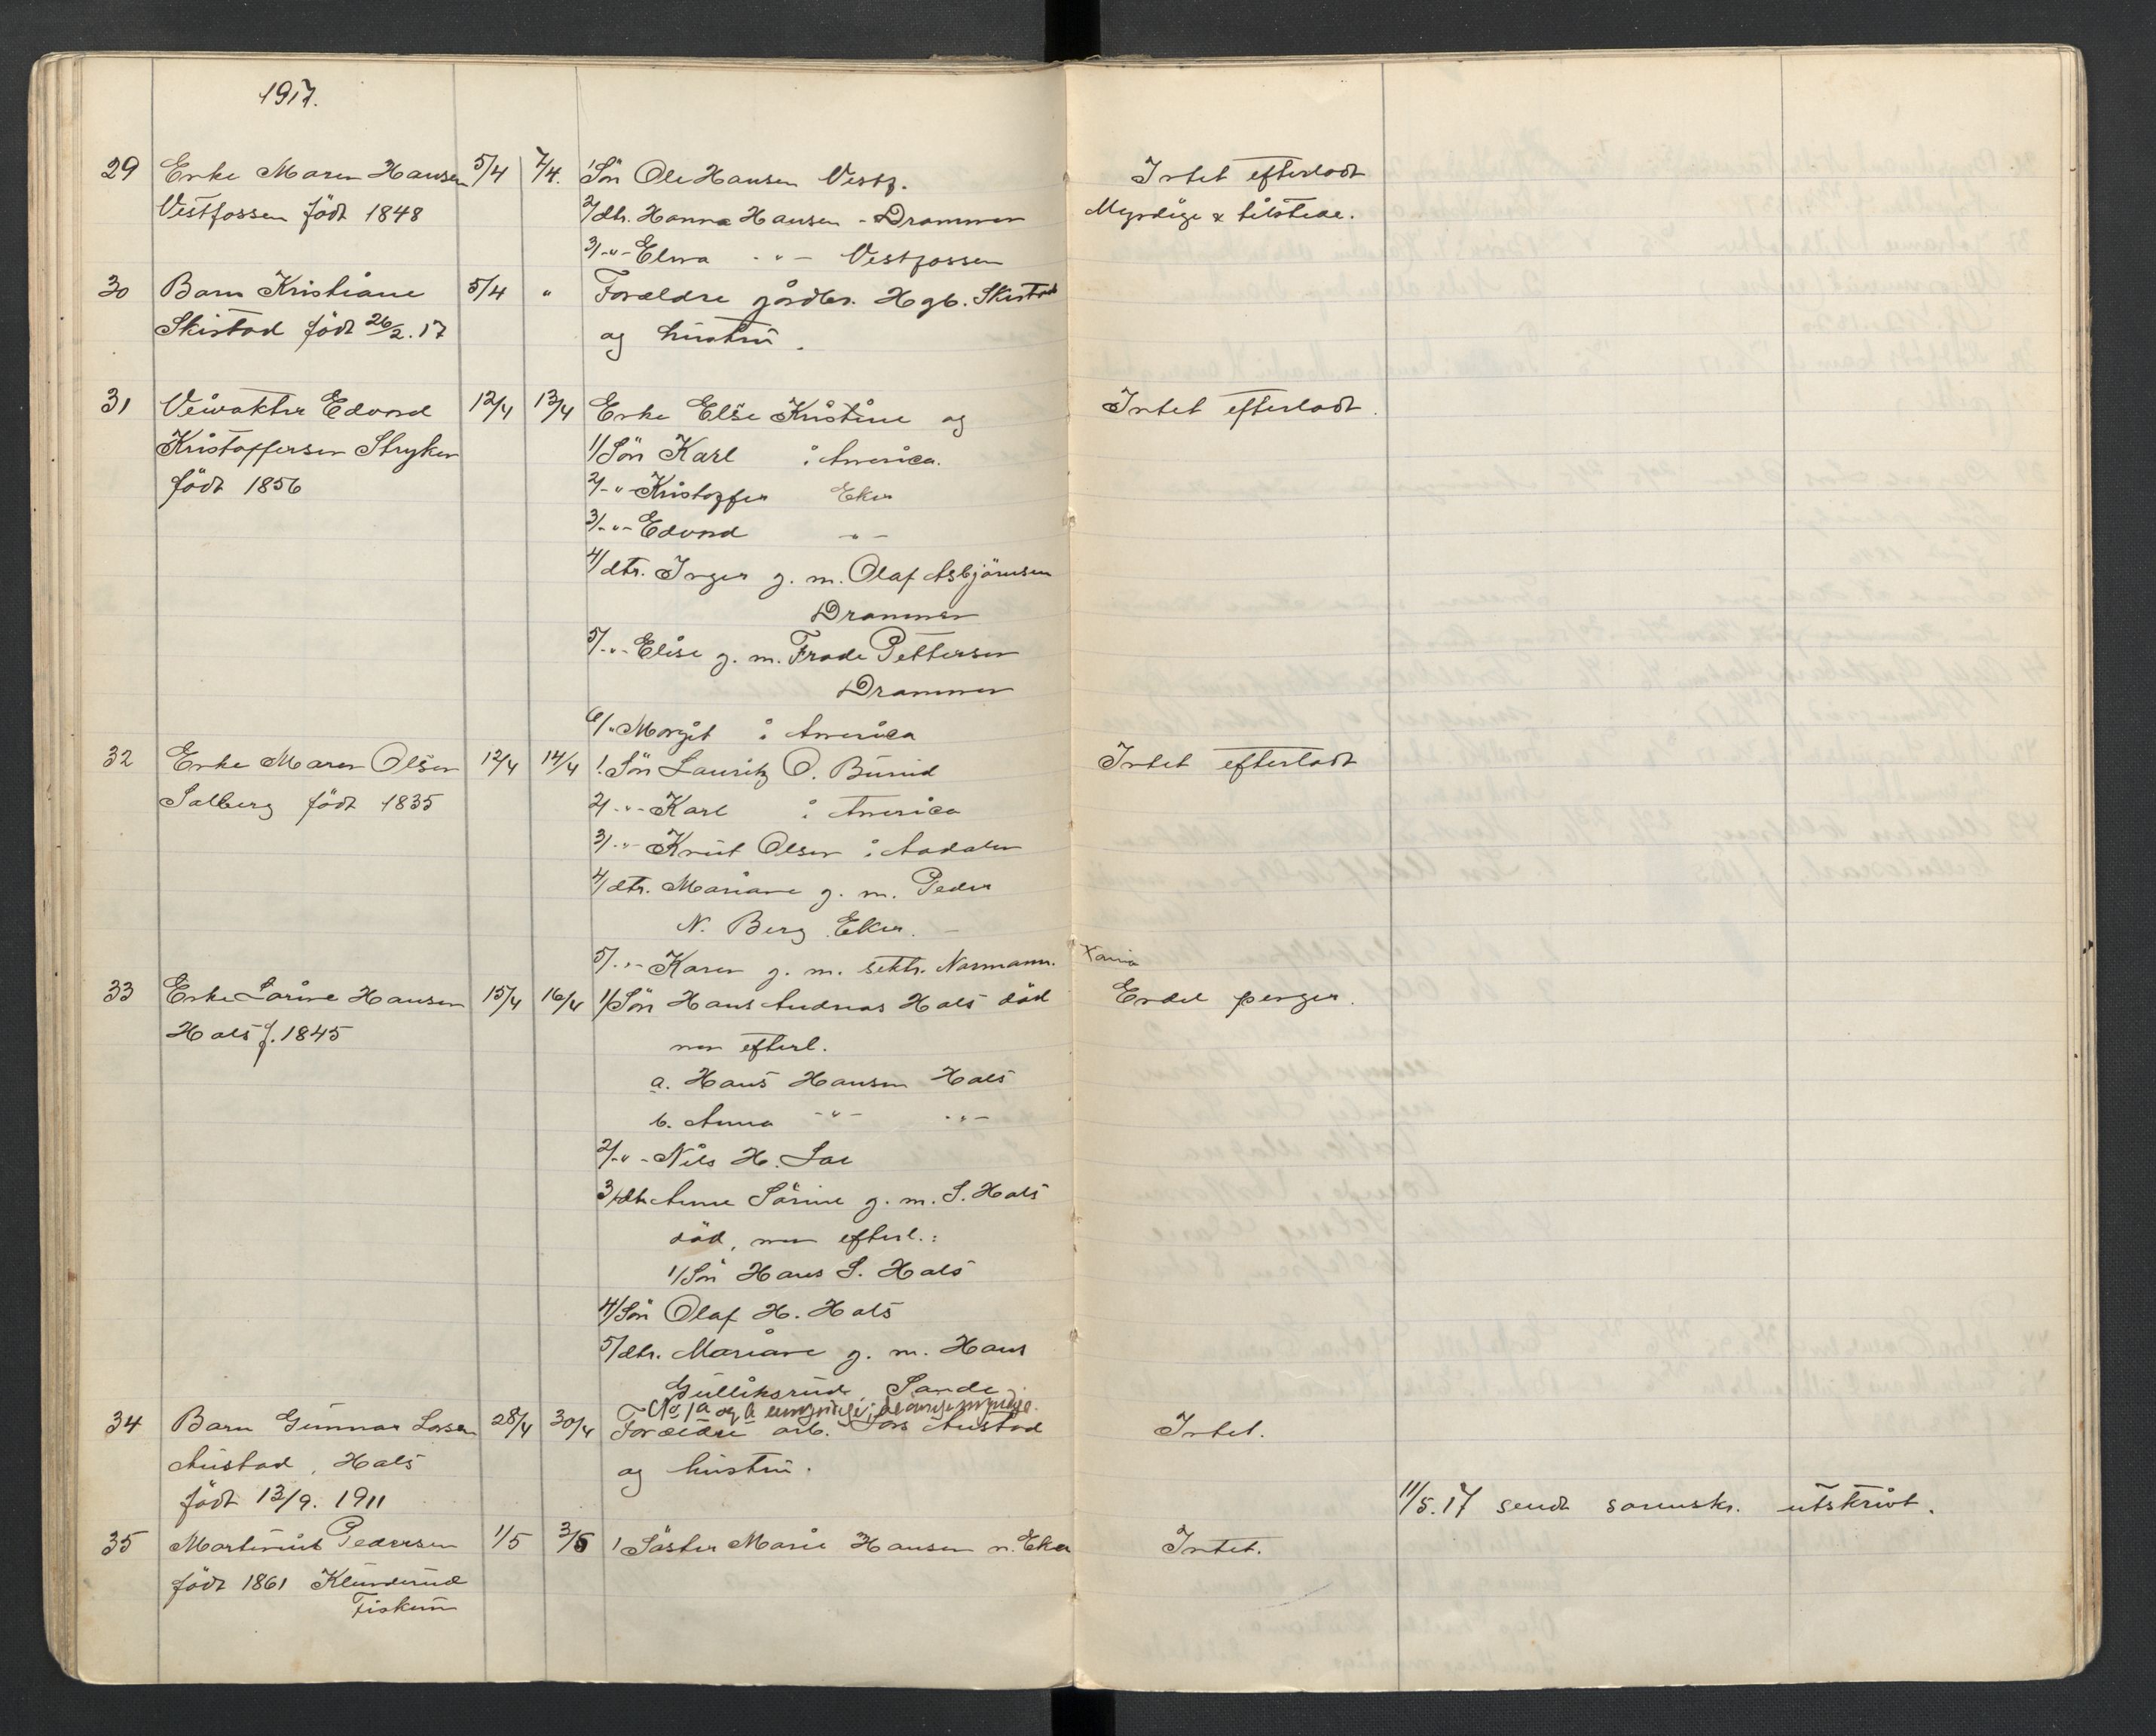 1917.
29 Enke Maren Hansen 5/4 7/4. 1/ Sön Ole Hansen Vestf. Intet efterladt
Vestfossen född 1848 2/ dtr. Hanna Hansen - Drammen Myndige & tilstede.
3/ -"- Elna -"- Vestfossen
30 Barn Kristiane 5/4 " Forældre gårdbr. H gb. Skistad
Skistad född 26/2.17 og hustru.
31 Veivakter Edvard 12/4 13/4 Enke Else Kristine og Intet efterladt.
Kristoffersen Stryken 1/ Sön Karl i America.
född 1856 2/ -"- Kristoffer Eker
3/ -"- Edvard -"-
4/ dtr. Inger g. m. Olaf Asbjörnsen
Drammen
5/ -"- Elise g. m. Frode Pettersen
Drammen
6/ " Margit i America
32 Enke Maren Olsen 12/4 14/4 1. Sön Lauritz O. Burud Intet efterladt
Solberg född 1835 2/ -"- Karl i America
3/ -"- Knut Olsen i Aadalen
4/ dtr. Mariane g. m. Peder
N. Berg Eker. -
5/ -"- Karen g. m. sektr. Normann. Xania
33 Enke Larine Hansen 15/4 16/4 1/ Sön Hans Andreas Hals död Endel penger.
Hals f. 1845 men efterl.
a. Hans Hansen Hals
b. Anna -"- -"-
2/ -"- Nils H. Loe
3/ dtr. Anne Sörine g. m. S. Hals
död, men efterl.:
1/ Sön Hans S. Hals
4/ Sön Olaf H. Hals
5/ dtr. Mariane g. m. Hans
Gulliksrud, Sande
No 1 a og b umyndige; de övrige myndige.
34 Barn Gunnar Larsen 28/4 30/4 Forældre arb. Lars Austad Intet.
Austad, Hals og hustru.
född 13/9. 1911
11/5.17 sendt sorenskr. utskrivt.
35 Martinius Pedersen 1/5 3/5 1 Söster Marie Hansen n. Eker Intet.
född 1861 Klunderud
Fiskum